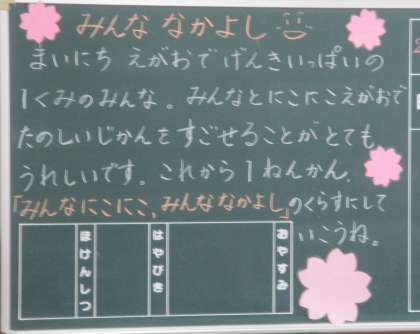 みんな なかよし
まいにち えがおで げんきいっぱいの
1くみのみんな。みんなとにこにこえがおで
たのしいじかんをすごせることがとても
うれしいです。これから1ねんかん、
「みんなにこにこ、みんななかよし」のくらすにして
いこうね。
おやすみ
はやびき
ほけんしつ